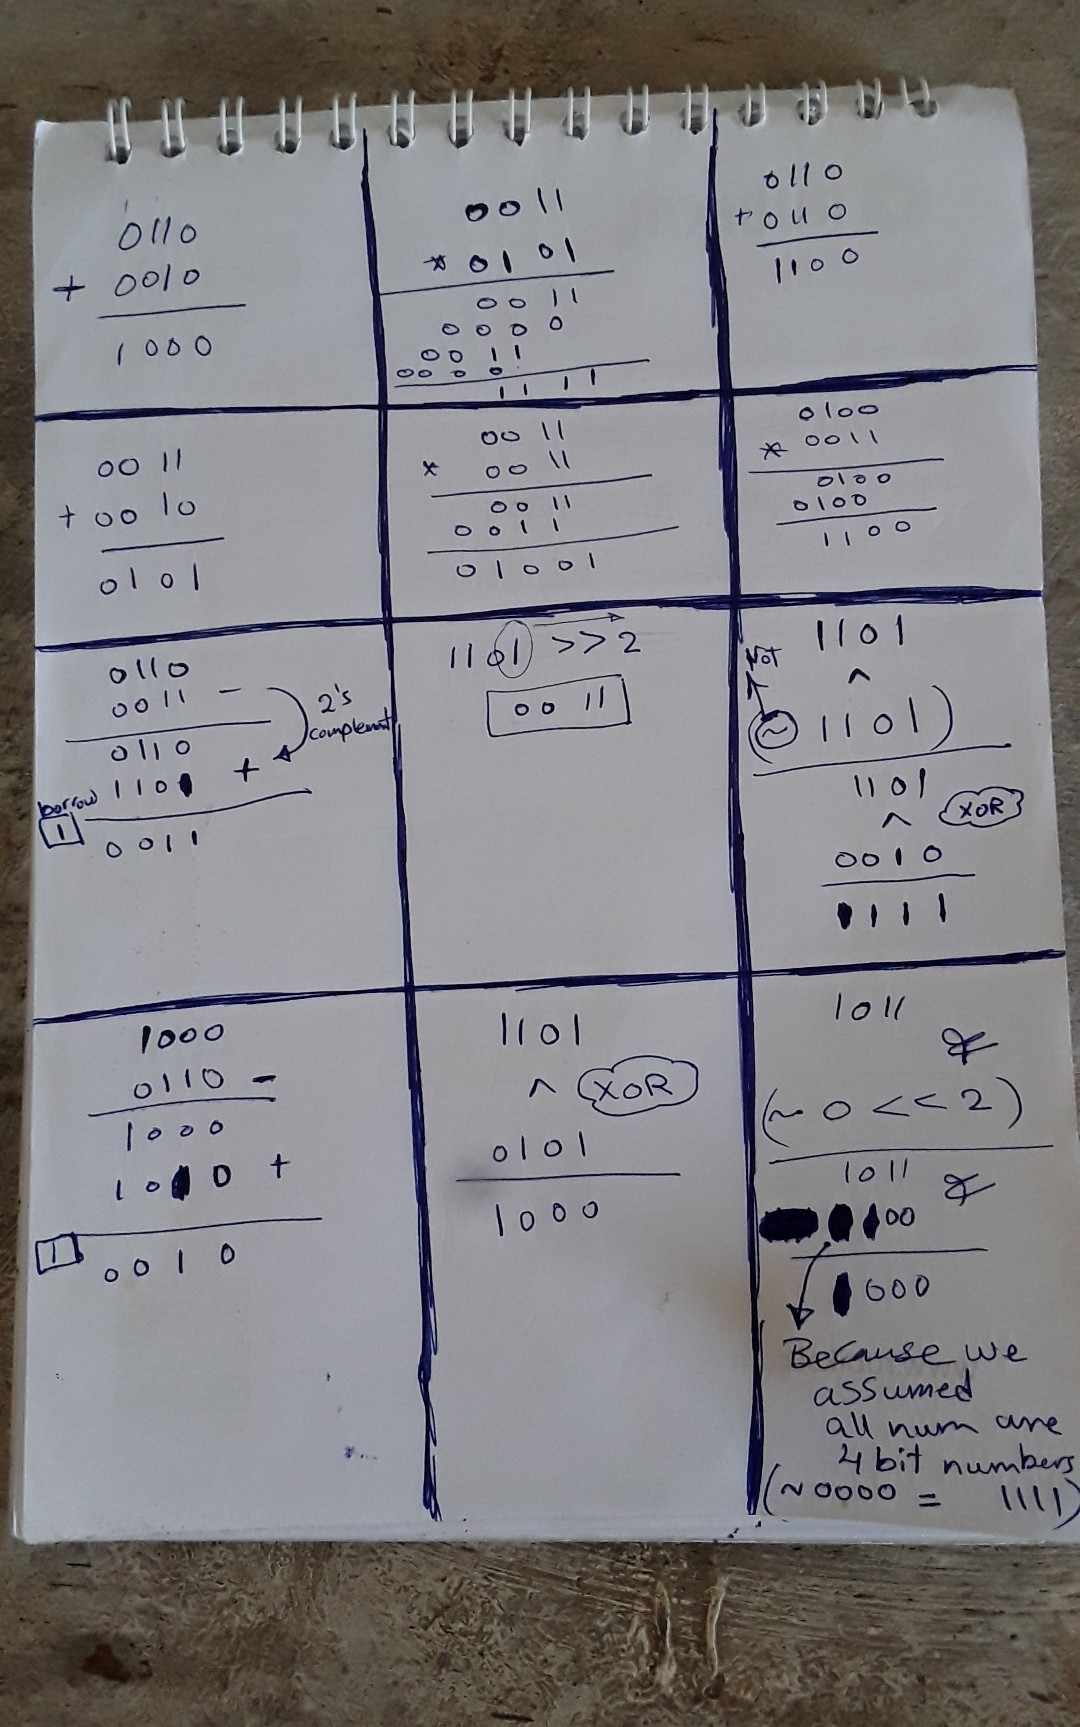 0110
+ 0010
1000
0011
* 0101
0011
0000
0011
0000
1111
0110
+ 0110
1100
0011
+ 0010
0101
0011
* 0011
0011
0011
01001
0100
* 0011
0100
0100
1100
0110
0011 -
2's
complement
0110
1101 +
borrow
1 0011
1101 >> 2
0011
1101
^
Not
(~ 1101)
1101
^ XOR
0010
1111
1000
0110 -
1000
1010 +
1 0010
1101
^ XOR
0101
1000
1011
&
(~0 << 2)
1011 &
1100
1000
Because we
assumed
all num are
4 bit numbers
(~0000 = 1111)